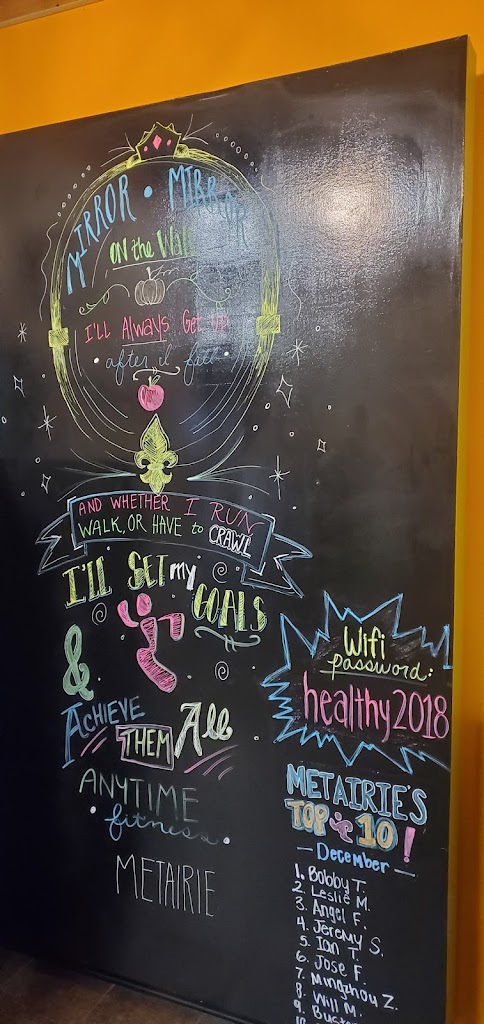 MIRROR • MIRROR
ON the Wall
I'LL Always Get UP
• after I fall •
AND WHETHER I RUN
WALK, OR HAVE to CRAWL
I'LL SET my
GOALS
&
ACHIEVE
THEM All
ANYTIME
• fitness •
METAIRIE
Wifi
password:
healthy2018
METAIRIE'S
TOP 10!
— December —
1. Bobby T.
2. Leslie M.
3. Angel F.
4. Jeremy S.
5. Ian T.
6. Jose F.
7. Mingzhou Z.
8. Will M.
9.
10